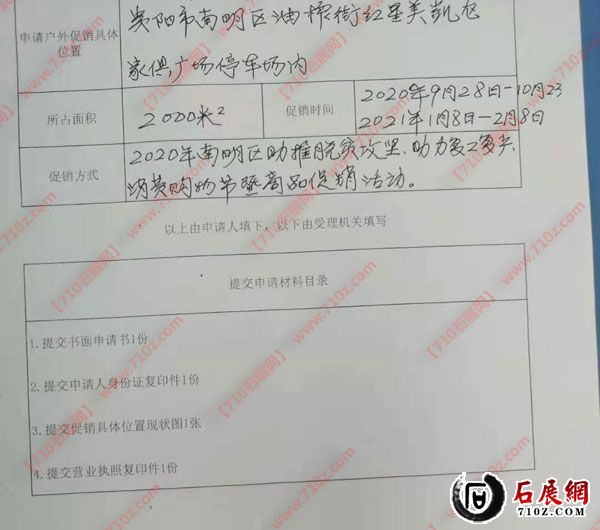 贵阳市南明区油榨街红星美凯龙
申请户外促销具体
位置
家俱广场停车场内
所占面积
2000米²
促销时间
2020年9月28日-10月23
2021年1月8日-2月8日
促销方式
2020年南明区助推脱贫攻坚、助力复工复产
消费购物节暨商品促销活动。
以上由申请人填下，以下由受理机关填写
提交申请材料目录
1.提交书面申请书1份
2.提交申请人身份证复印件1份
3.提交促销具体位置现状图1张
4.提交营业执照复印件1份
【710石展网】
www.710z.com
石展網
710Z.COM